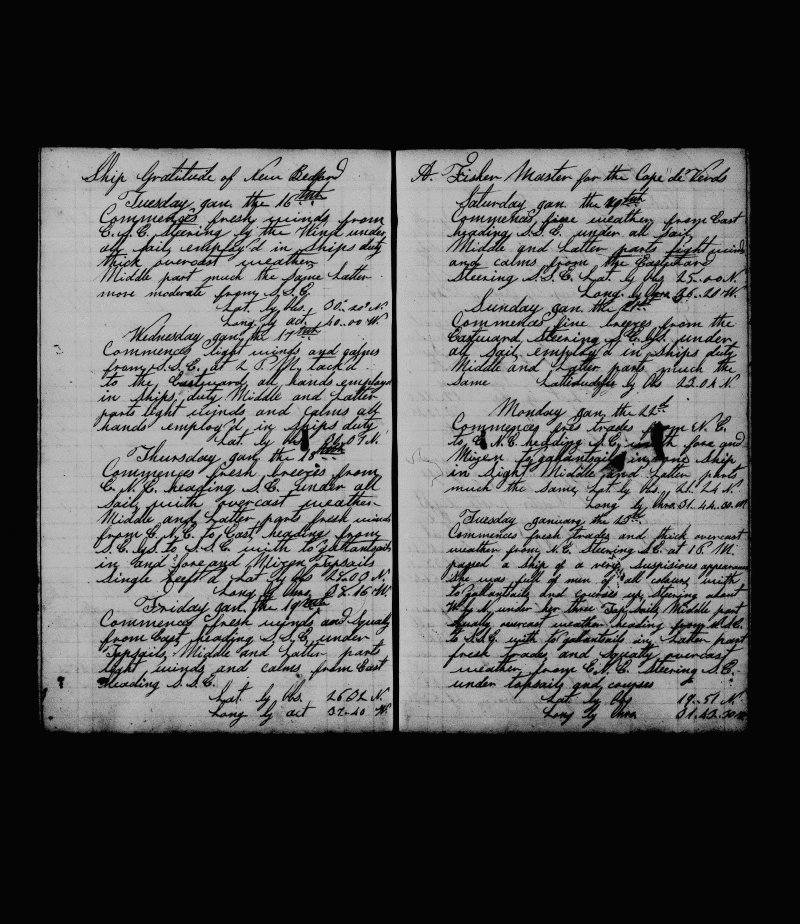 Ship Gratitude of New Bedford
Tuesday Jan. the 16teth
Commences fresh winds from
E.S.E. Steering by the Wind under
all sail employ'd in Ships duty
thick overcast weather
Middle part much the same Latter
more moderate from S.S.E.
Lat. by Obs. 30°..20' N.
Long by act. 40..00 W.
Wednesday Jan. the 17teth
Commences light winds and calms
from S.S.E. at 2 P.M. tack'd
to the Eastward all hands employd
in Ships duty Middle and Latter
parts light winds and calms all
hands employ'd in Ships duty
Lat by Obs
Thursday Jan. the
Commences fresh breezes from
E.N.E. heading S.E. under all
sail with overcast weather
Middle and Latter parts fresh winds
from E.N.E. to East heading from
S.E. by S. to S.S.E with to'galantsails
in and fore and Mizen Topsails
Single reef'd Lat by Obs 28.00 N.
Long by Chro. 38.16 W.
Friday Jan. the 19teth
Commences fresh winds and Squaly
from East heading S.S.E. under
Topsails Middle and Latter parts
light winds and calms from East
heading S.S.E.
Lat. by Obs. 26.32 N.
Long by act 37..40 W.
A. Fisher Master for the Cape de Verds
Saturday Jan. the
Commences fine weather from East
heading S.S.E. under all sail
Middle and Latter parts light winds
and calms from the Eastward
Steering S.S.E. Lat. by Obs 25..00 N.
Long. by Chro. 36..28 W.
Sunday Jan. the 21st
Commences fine breezes from the
Eastward Steering S.E. by S. under
all sail employ'd in Ships duty
Middle and Latter parts much the
same by Obs 22.04 N.
Monday Jan the
Commences trades from N.E.
to E.N.E. heading S.E. with fore and
Mizen to'galantsails in one Ship
in Sight Middle and Latter parts
much the same, Lat by Obs. 21.24 N
Long by Chro. 31.44.30 W
Tuesday January the
Commences fresh trades and thick overcast
weather from N.E. Steering S.E. at 1 P.M.
passed a Ship of a very Suspicious appearance
She was full of men of all colours with
to'galantsails and courses up Steering about
W by N. under her three Top Sails, Middle part
Squaly overcast weather heading from
to S.S.E. with to'galantsails in Latter part
fresh trades and Squaly overcast
weather from E.N.E. Steering S.E.
under topsails and courses
Lat. by Obs 19..51 N.
Long by Chro. 31.42.30 W